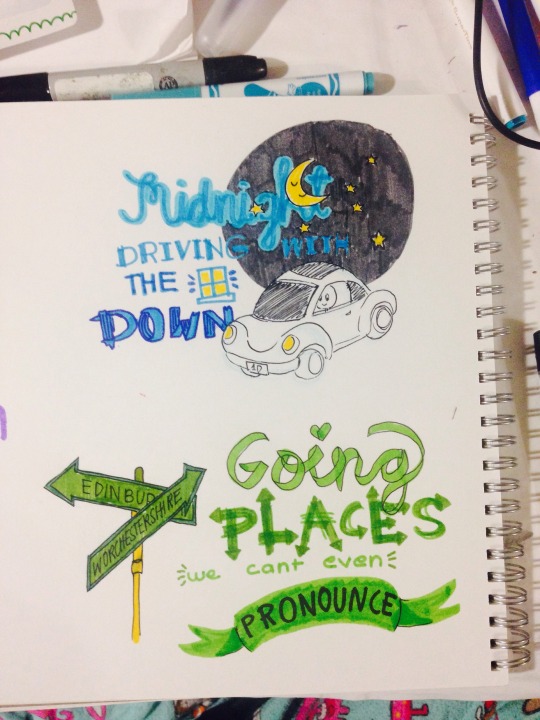 Midnight
DRIVING WITH
THE
DOWN
1D
Going
PLACES
we cant even
PRONOUNCE
EDINBUR
WORCHESTERSHIRE